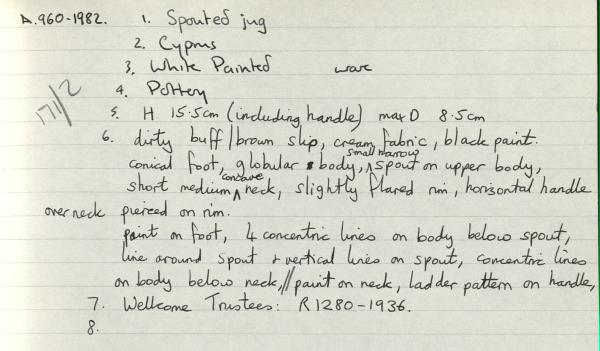 A.960-1982. 1. Spouted jug
2. Cyprus
3. White Painted ware
4. Pottery
171/2
5. H 15.5cm (including handle) max D 8.5cm
6. dirty buff/brown slip, cream fabric, black paint.
conical foot, globular body, small narrow spout on upper body,
short medium concave neck, slightly flared rim, horizontal handle
over neck pierced on rim.
paint on foot, 4 concentric lines on body below spout,
line around spout & vertical lines on spout, concentric lines
on body below neck, // paint on neck, ladder pattern on handle,
7. Wellcome Trustees: R1280-1936.
8.